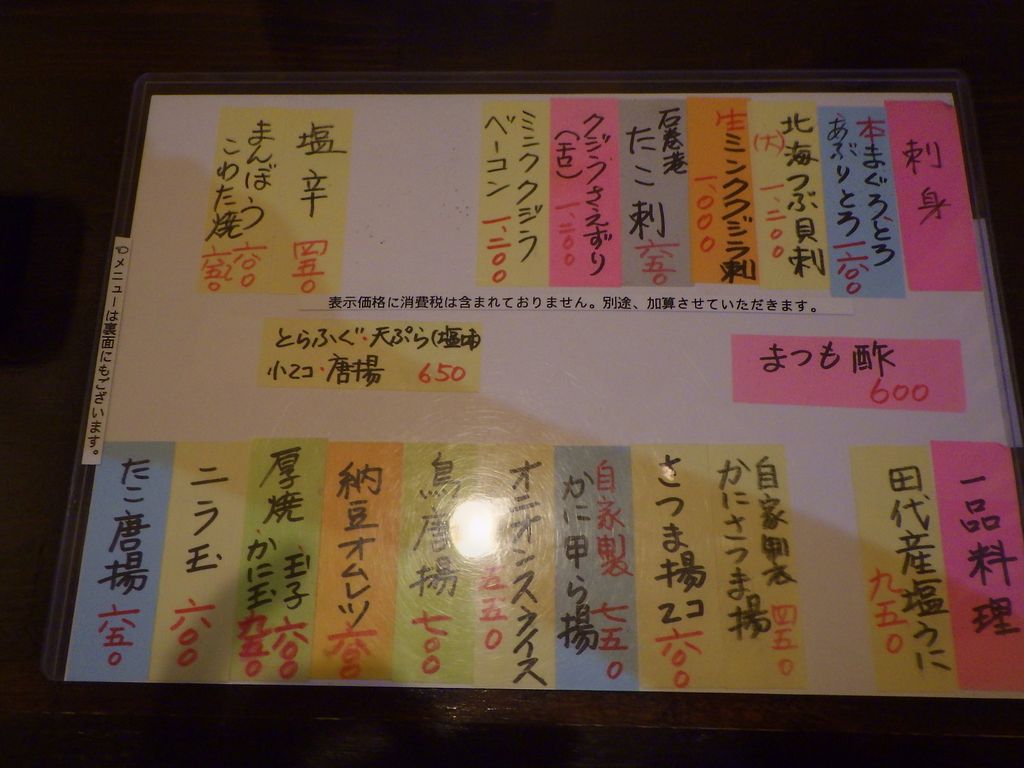 刺身
本まぐろ、とろ
あぶりとろ 一六〇〇
北海つぶ貝刺
(大) 一、二〇〇
生ミンククジラ刺
一、〇〇〇
石巻産
たこ刺 六五〇
クジラさえずり
(舌) 一、二〇〇
ミンククジラ
ベーコン 一、二〇〇
塩辛 四五〇
まんぼう 六〇〇
こわた焼 六五〇
表示価格に消費税は含まれておりません。別途、加算させていただきます。
メニューは裏面にもございます。
とらふぐ・天ぷら(塩
小2コ・唐揚 650
まつも酢
600
一品料理
田代産塩うに
九五〇
自家製
かにさつま揚 四五〇
さつま揚2コ 六〇〇
自家製 七五〇
かに甲ら揚
オニオンスライス
五五〇
鳥唐揚 七〇〇
納豆オムレツ 六〇〇
厚焼 玉子 六〇〇
かに玉 九五〇
ニラ玉 六〇〇
たこ唐揚 六五〇